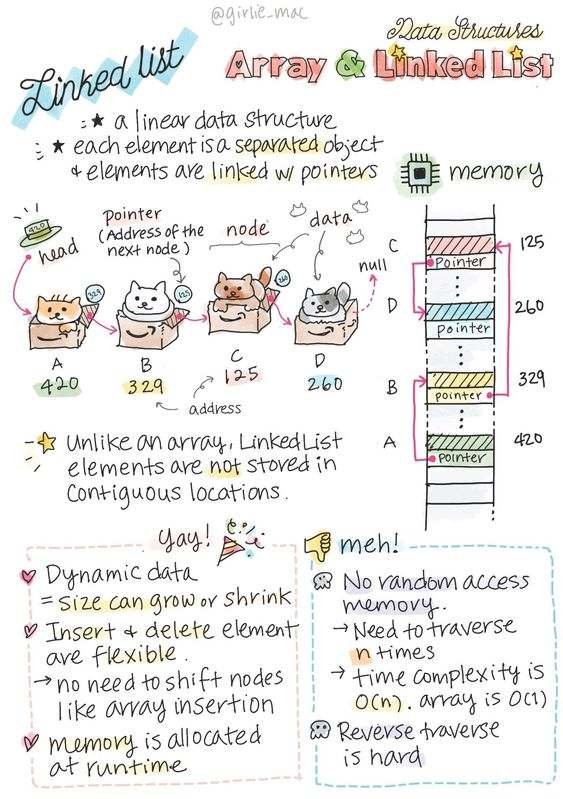 @girlie_mac
Data Structures
Linked list
Array & Linked List
★ a linear data structure
★ each element is a separated object
& elements are linked w/ pointers
memory
420
head
pointer
(Address of the
next node)
node
data
null
329
125
260
A
B
C
D
420
329
125
260
address
C
125
pointer
D
260
pointer
B
329
pointer
A
420
pointer
Unlike an array, Linked List
elements are not stored in
contiguous locations.
yay!
Dynamic data
= size can grow or shrink
Insert & delete element
are flexible.
→ no need to shift nodes
like array insertion
memory is allocated
at runtime
meh!
No random access
memory.
→ Need to traverse
n times
→ time complexity is
O(n). array is O(1)
Reverse traverse
is hard